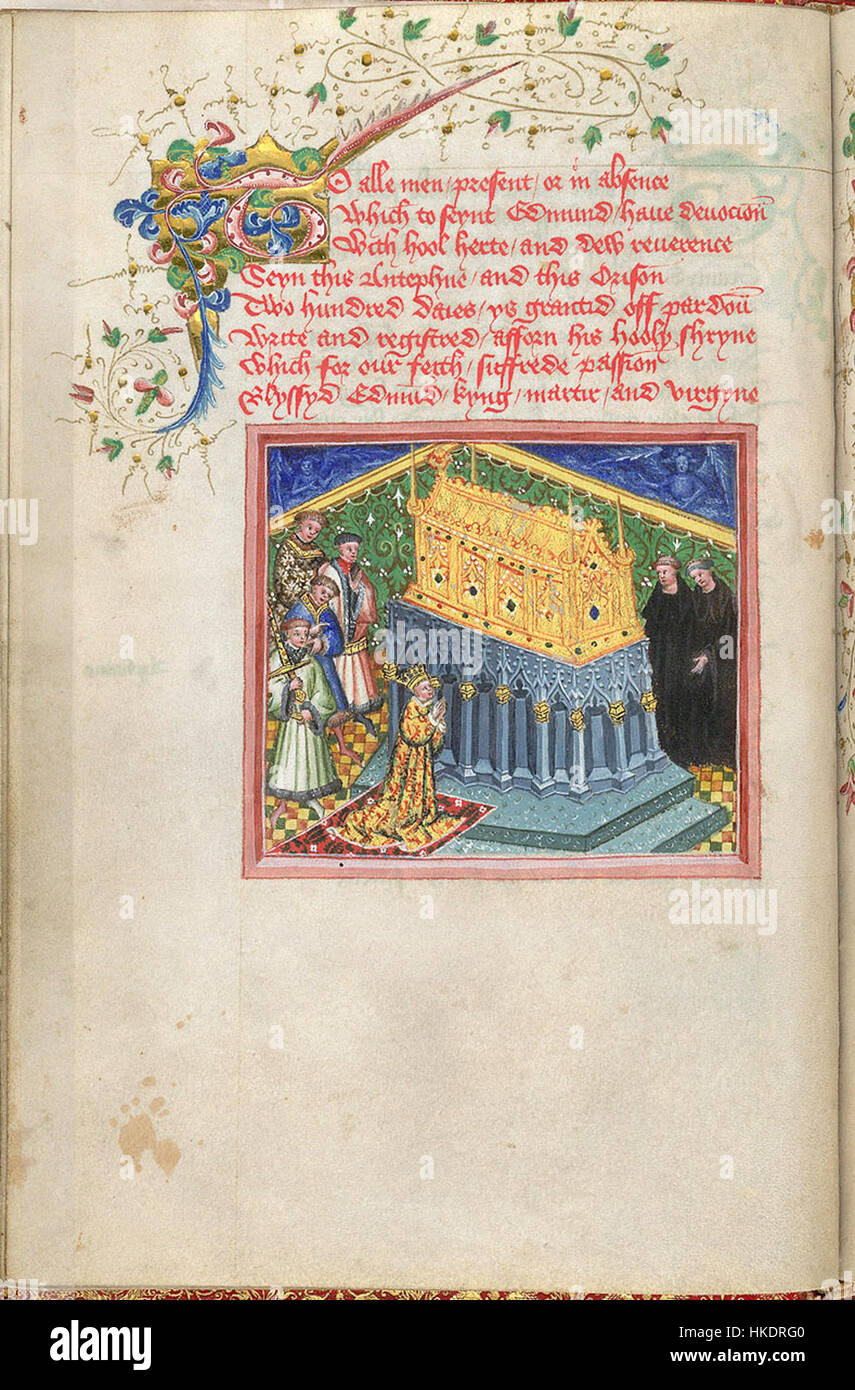 To alle men / present / or in absence
Which to seynt Edmund / haue deuocioun
With hool herte / and dew reuerence
Seyn this Antephne / and this Orison
Two hundred daies / ys grantid off pardoun
Write and registred / afforn his hooly shryne
Which for our feith / suffrede passioun
Blyssyd Edmund / kyng / martir / and virgyne
alamy
alamy stock photo
Image ID: HKDRG0
www.alamy.com